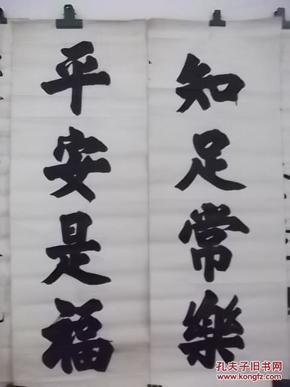 知足常樂
平安是福
孔夫子旧书网